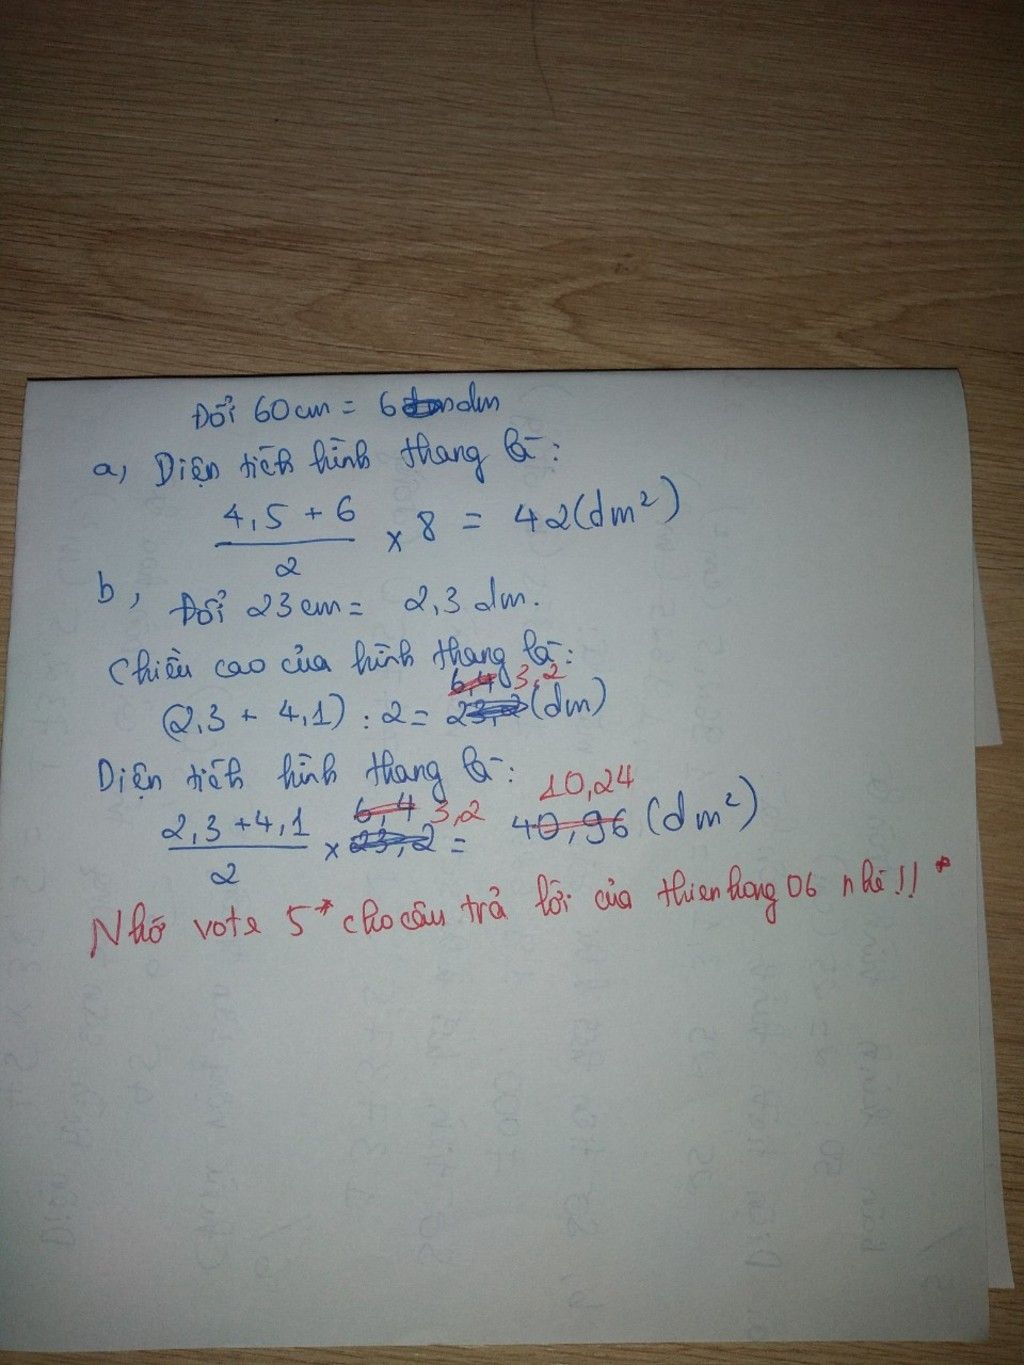 Đổi 60 cm = 6 dm
a, Diện tích hình thang là:
4,5 + 6
2
× 8 = 42 (dm²)
b, Đổi 23 cm = 2,3 dm.
Chiều cao của hình thang là:
6,4 3,2
(2,3 + 4,1) : 2 = 23,2 (dm)
Diện tích hình thang là:
10,24
6,4 3,2
2,3 + 4,1
2
× 23,2 = 40,96 (dm²)
Nhớ vote 5* cho câu trả lời của thienhang06 nhé!! *